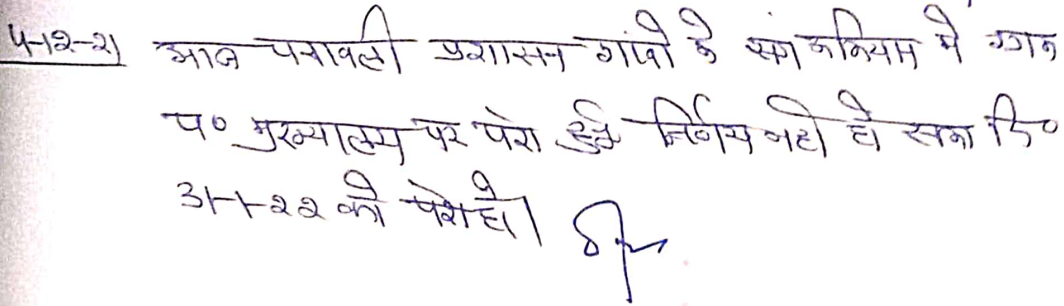 4-12-21 आज पत्रावली प्रशासन गांवो के संग अभियान मे ग्राम
प० मुख्यालय पर पेश हुई निर्णय नही हो सका दि०
31-1-22 को पेश हो।